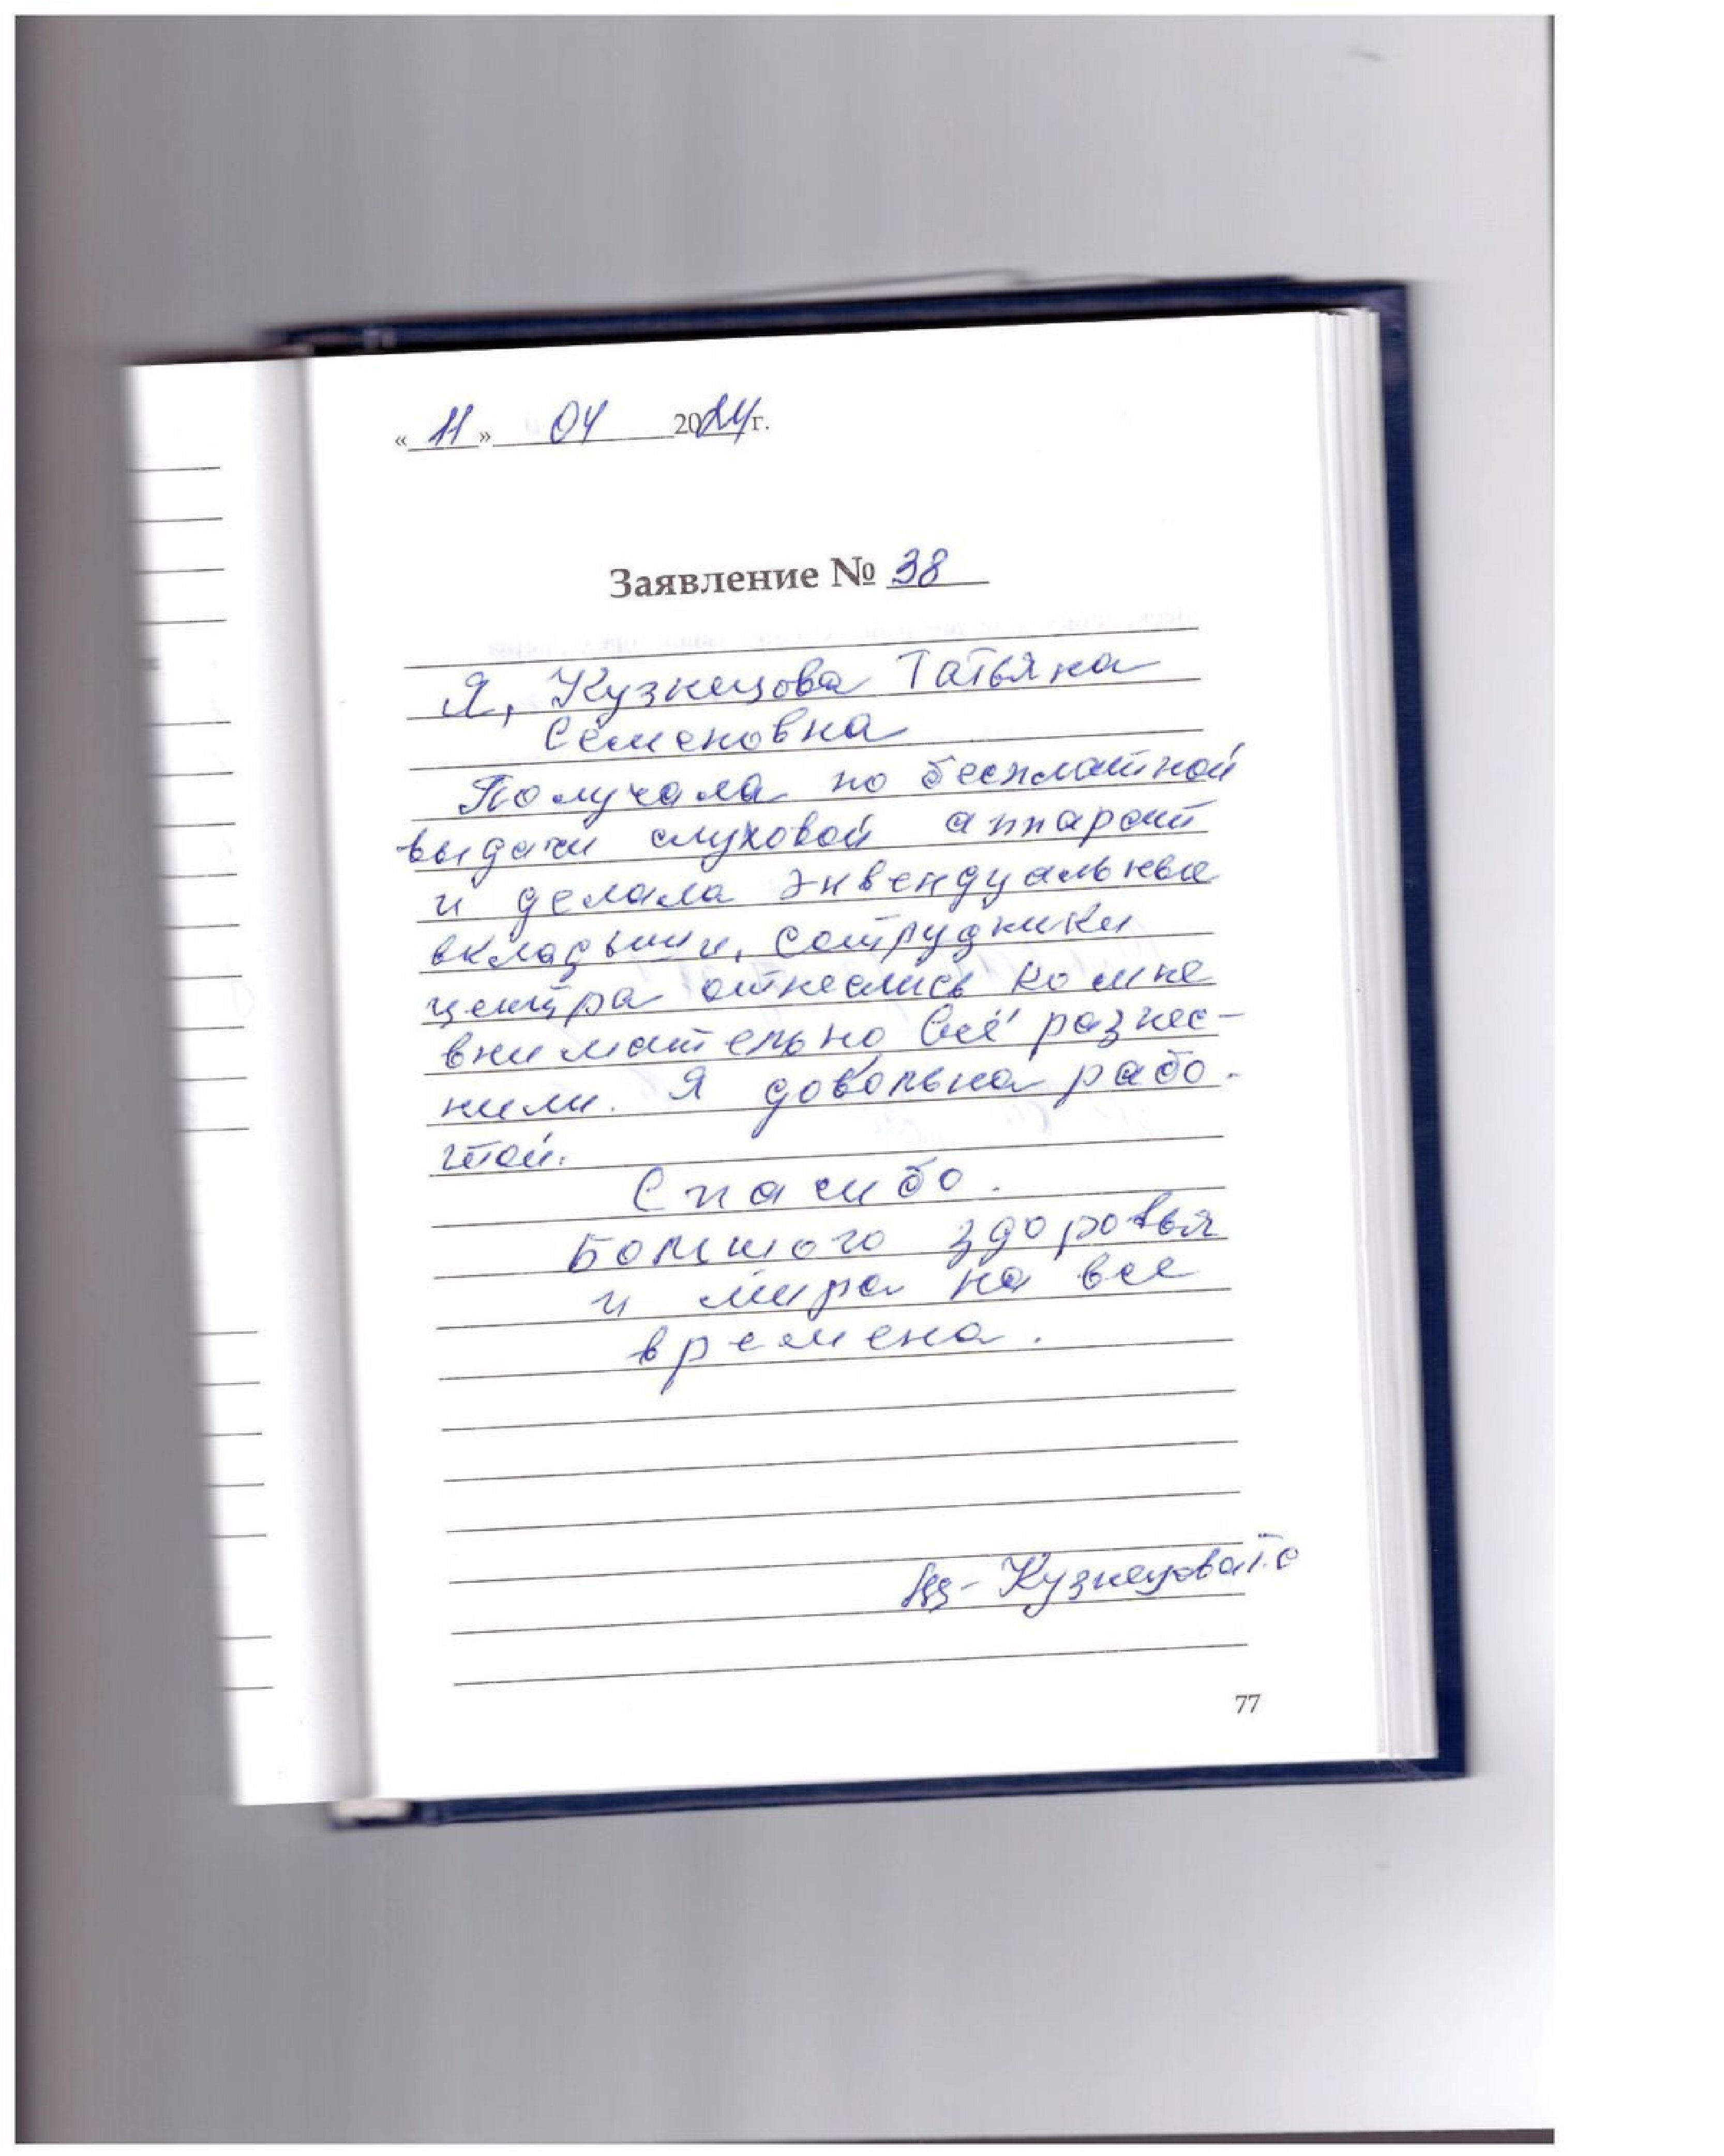 «11» 04 2024г.
Заявление № 38
Я, Кузнецова Татьяна
Семеновна
Получала по бесплатной
выдачи слуховой аппарат
и делала энвендуальные
вкладыши, сотрудники
центра отнеслись ко мне
внимательно всё разнес-
нили. Я довольна рабо-
той.
Спасибо.
Большого здоровья
и мира на все
времена.
Кузнецова Т.С
77